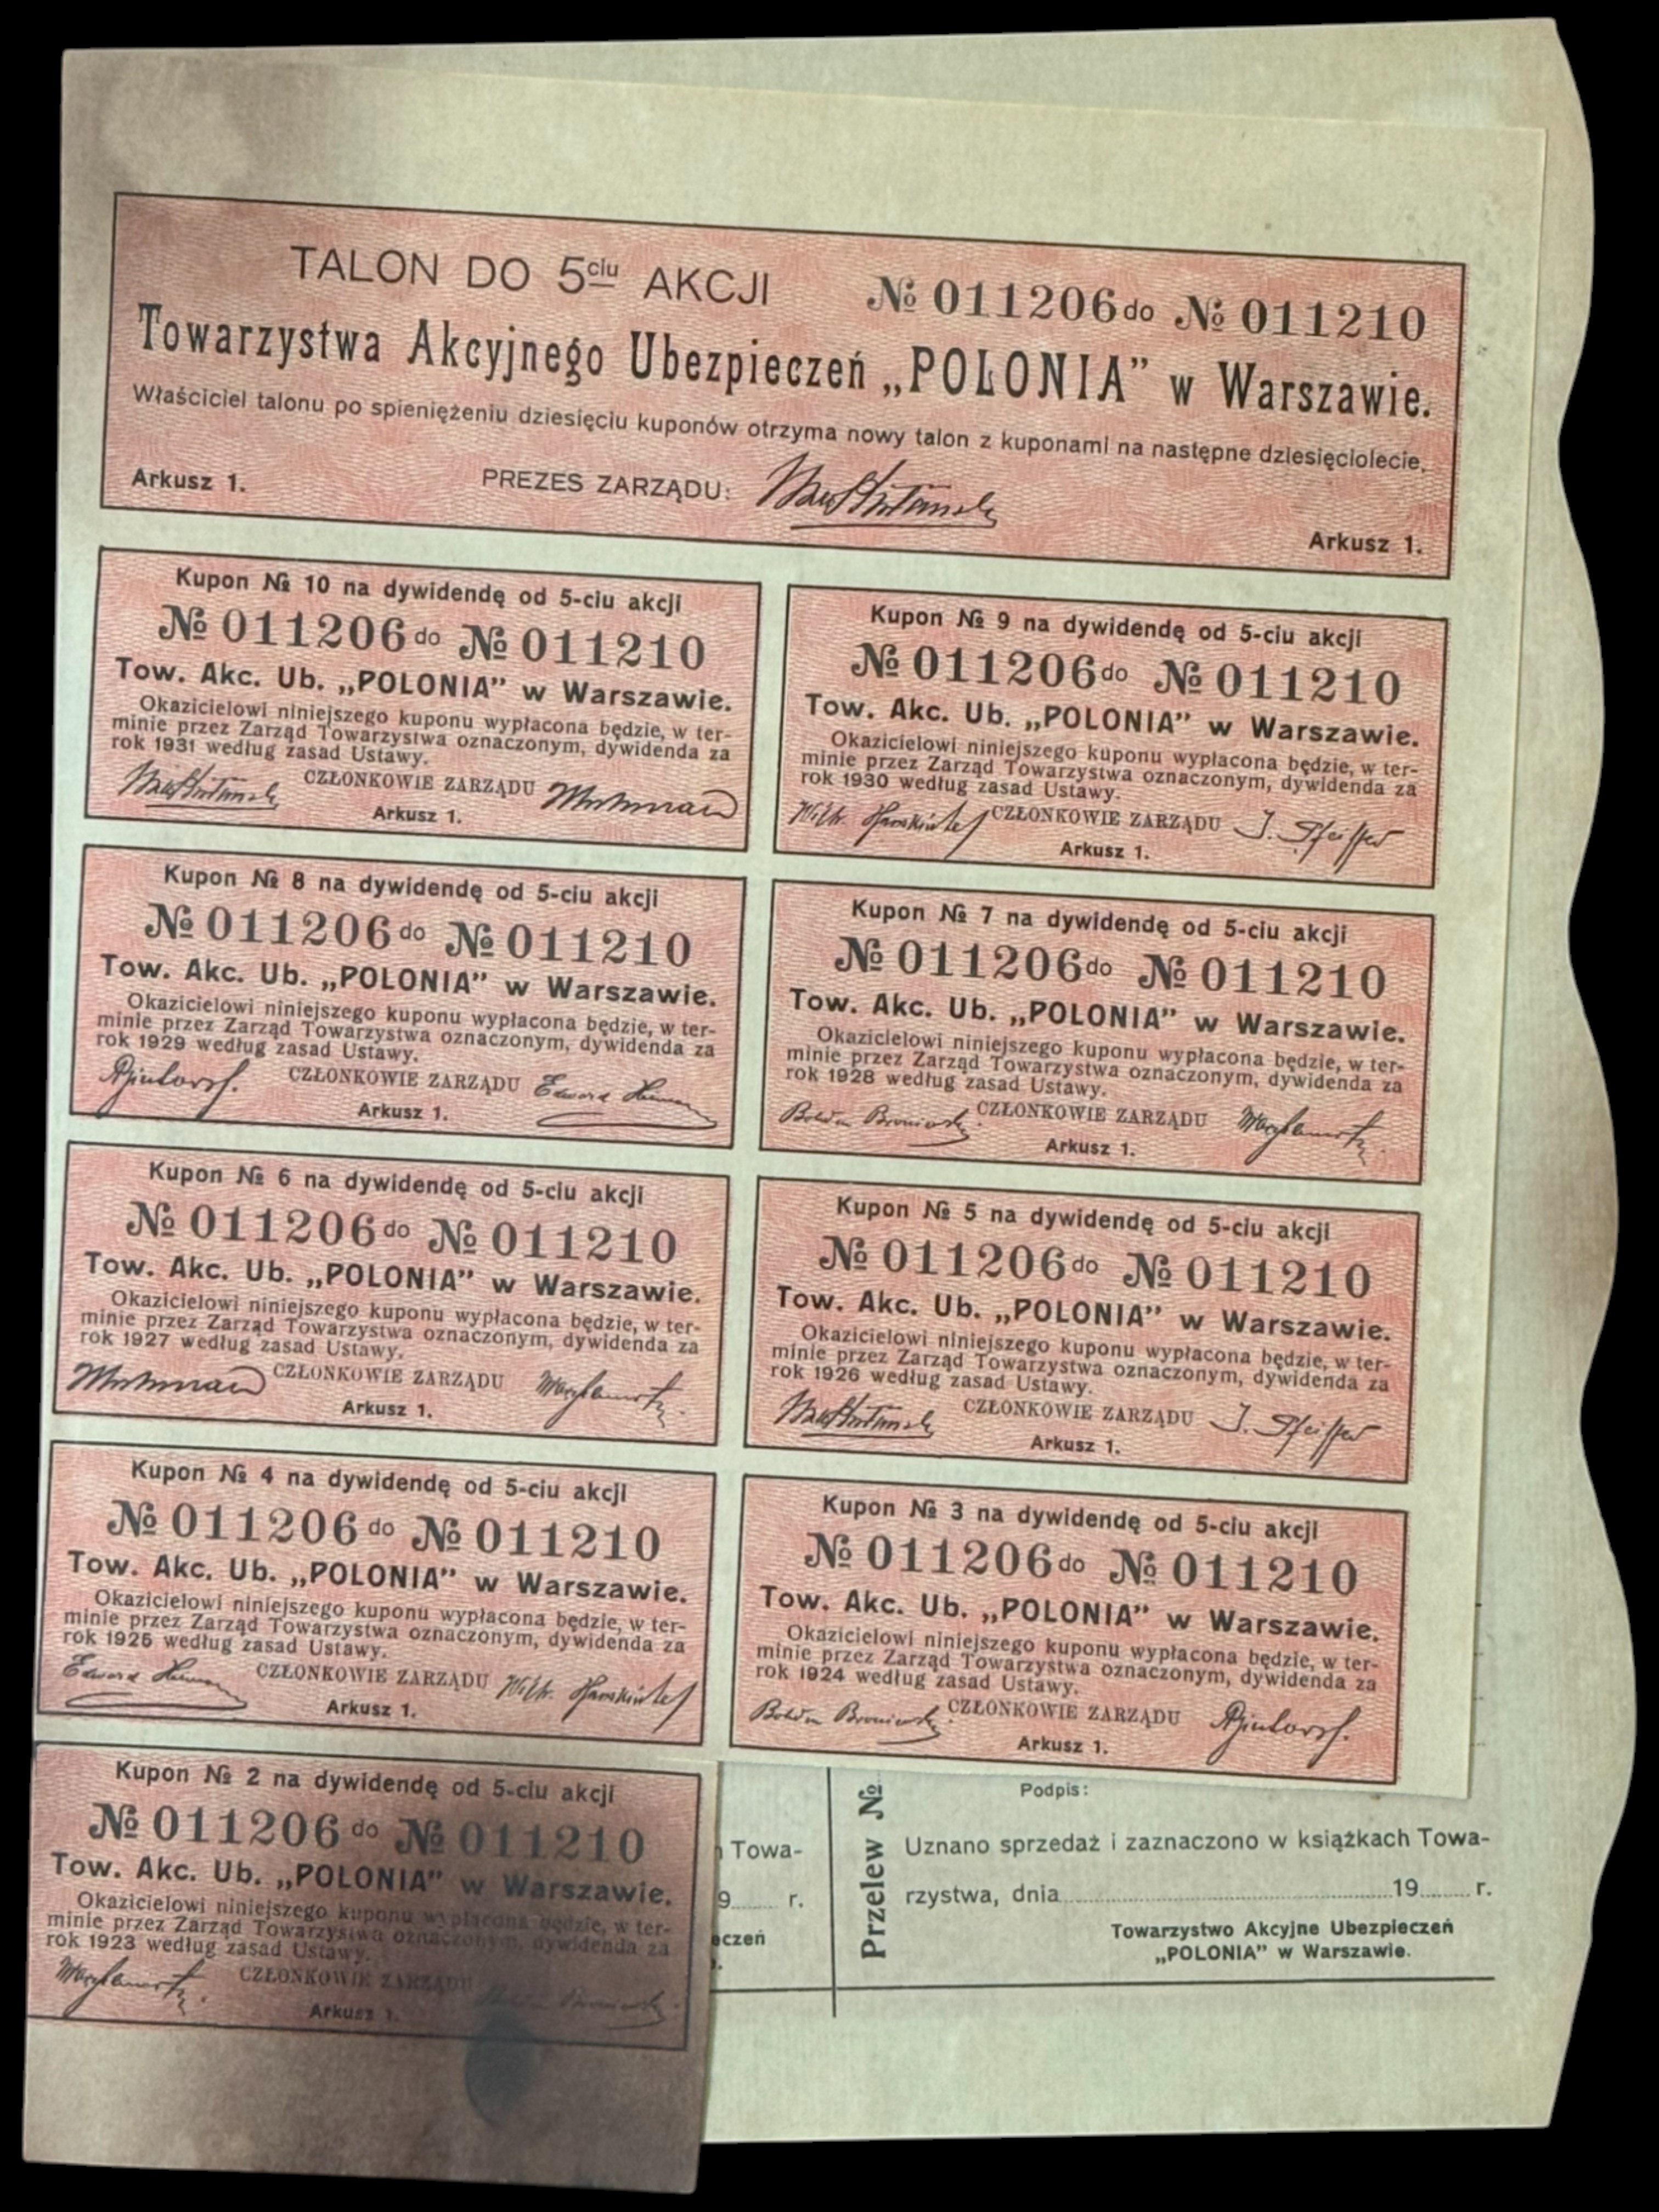 TALON DO 5ciu AKCJI № 011206 do № 011210
Towarzystwa Akcyjnego Ubezpieczeń „POLONIA” w Warszawie.
Właściciel talonu po spieniężeniu dziesięciu kuponów otrzyma nowy talon z kuponami na następne dziesięciolecie.
Arkusz 1. PREZES ZARZĄDU:
Arkusz 1.
Kupon № 10 na dywidendę od 5-ciu akcji
№ 011206 do № 011210
Tow. Akc. Ub. „POLONIA” w Warszawie.
Okazicielowi niniejszego kuponu wypłacona będzie, w ter-
minie przez Zarząd Towarzystwa oznaczonym, dywidenda za
rok 1931 według zasad Ustawy.
CZŁONKOWIE ZARZĄDU
Arkusz 1.
Kupon № 9 na dywidendę od 5-ciu akcji
№ 011206 do № 011210
Tow. Akc. Ub. „POLONIA” w Warszawie.
Okazicielowi niniejszego kuponu wypłacona będzie, w ter-
minie przez Zarząd Towarzystwa oznaczonym, dywidenda za
rok 1930 według zasad Ustawy.
CZŁONKOWIE ZARZĄDU J. Pfeiffer
Arkusz 1.
Kupon № 8 na dywidendę od 5-ciu akcji
№ 011206 do № 011210
Tow. Akc. Ub. „POLONIA” w Warszawie.
Okazicielowi niniejszego kuponu wypłacona będzie, w ter-
minie przez Zarząd Towarzystwa oznaczonym, dywidenda za
rok 1929 według zasad Ustawy.
CZŁONKOWIE ZARZĄDU Edward
Arkusz 1.
Kupon № 7 na dywidendę od 5-ciu akcji
№ 011206 do № 011210
Tow. Akc. Ub. „POLONIA” w Warszawie.
Okazicielowi niniejszego kuponu wypłacona będzie, w ter-
minie przez Zarząd Towarzystwa oznaczonym, dywidenda za
rok 1928 według zasad Ustawy.
CZŁONKOWIE ZARZĄDU
Arkusz 1.
Kupon № 6 na dywidendę od 5-ciu akcji
№ 011206 do № 011210
Tow. Akc. Ub. „POLONIA” w Warszawie.
Okazicielowi niniejszego kuponu wypłacona będzie, w ter-
minie przez Zarząd Towarzystwa oznaczonym, dywidenda za
rok 1927 według zasad Ustawy.
CZŁONKOWIE ZARZĄDU
Arkusz 1.
Kupon № 5 na dywidendę od 5-ciu akcji
№ 011206 do № 011210
Tow. Akc. Ub. „POLONIA” w Warszawie.
Okazicielowi niniejszego kuponu wypłacona będzie, w ter-
minie przez Zarząd Towarzystwa oznaczonym, dywidenda za
rok 1926 według zasad Ustawy.
CZŁONKOWIE ZARZĄDU J. Pfeiffer
Arkusz 1.
Kupon № 4 na dywidendę od 5-ciu akcji
№ 011206 do № 011210
Tow. Akc. Ub. „POLONIA” w Warszawie.
Okazicielowi niniejszego kuponu wypłacona będzie, w ter-
minie przez Zarząd Towarzystwa oznaczonym, dywidenda za
rok 1925 według zasad Ustawy.
Edward CZŁONKOWIE ZARZĄDU
Arkusz 1.
Kupon № 3 na dywidendę od 5-ciu akcji
№ 011206 do № 011210
Tow. Akc. Ub. „POLONIA” w Warszawie.
Okazicielowi niniejszego kuponu wypłacona będzie, w ter-
minie przez Zarząd Towarzystwa oznaczonym, dywidenda za
rok 1924 według zasad Ustawy.
CZŁONKOWIE ZARZĄDU
Arkusz 1.
Kupon № 2 na dywidendę od 5-ciu akcji
№ 011206 do № 011210
Tow. Akc. Ub. „POLONIA” w Warszawie.
Okazicielowi niniejszego kuponu wypłacona będzie, w ter-
minie przez Zarząd Towarzystwa oznaczonym, dywidenda za
rok 1923 według zasad Ustawy.
CZŁONKOWIE ZARZĄDU
Arkusz 1.
Towa-
9 r.
czeń
Przelew №
Podpis:
Uznano sprzedaż i zaznaczono w książkach Towa-
rzystwa, dnia 19 r.
Towarzystwo Akcyjne Ubezpieczeń
„POLONIA” w Warszawie.